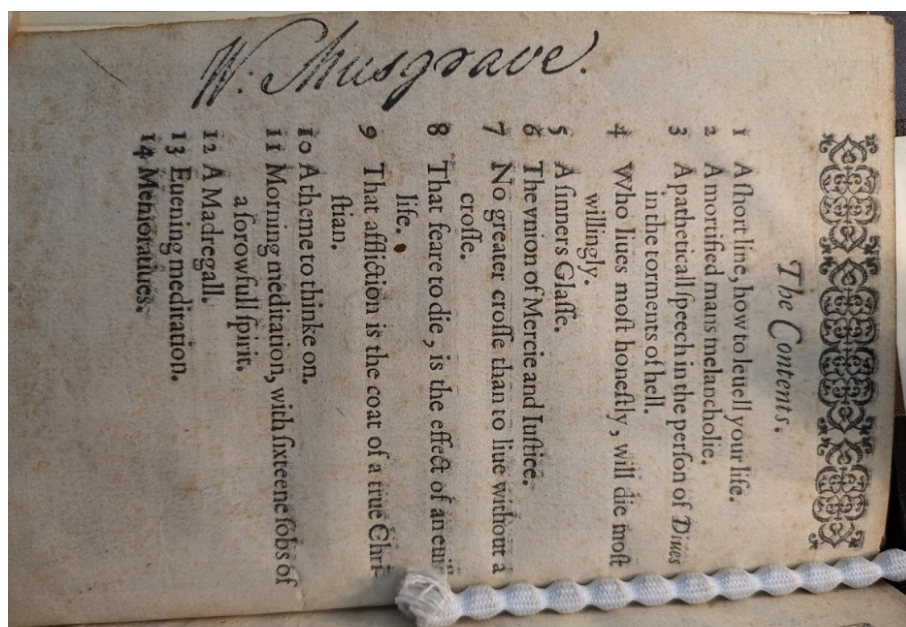 The Contents.
1 A ſhort line, how to leuell your life.
2 A mortified mans melancholie.
3 A patheticall ſpeech in the perſon of Diues
in the torments of hell.
4 Who liues moſt honeſtly, will die moſt
willingly.
5 A ſinners Glaſſe.
6 The vnion of Mercie and Iuſtice.
7 No greater croſſe than to liue without a
croſſe.
8 That feare to die, is the effect of an euill
life.
9 That affliction is the coat of a true Chri-
ſtian.
10 A theme to thinke on.
11 Morning meditation, with ſixteene ſobs of
a ſorowfull ſpirit.
12 A Madregall.
13 Euening meditation.
14 Memoratiues.
W: Musgrave.